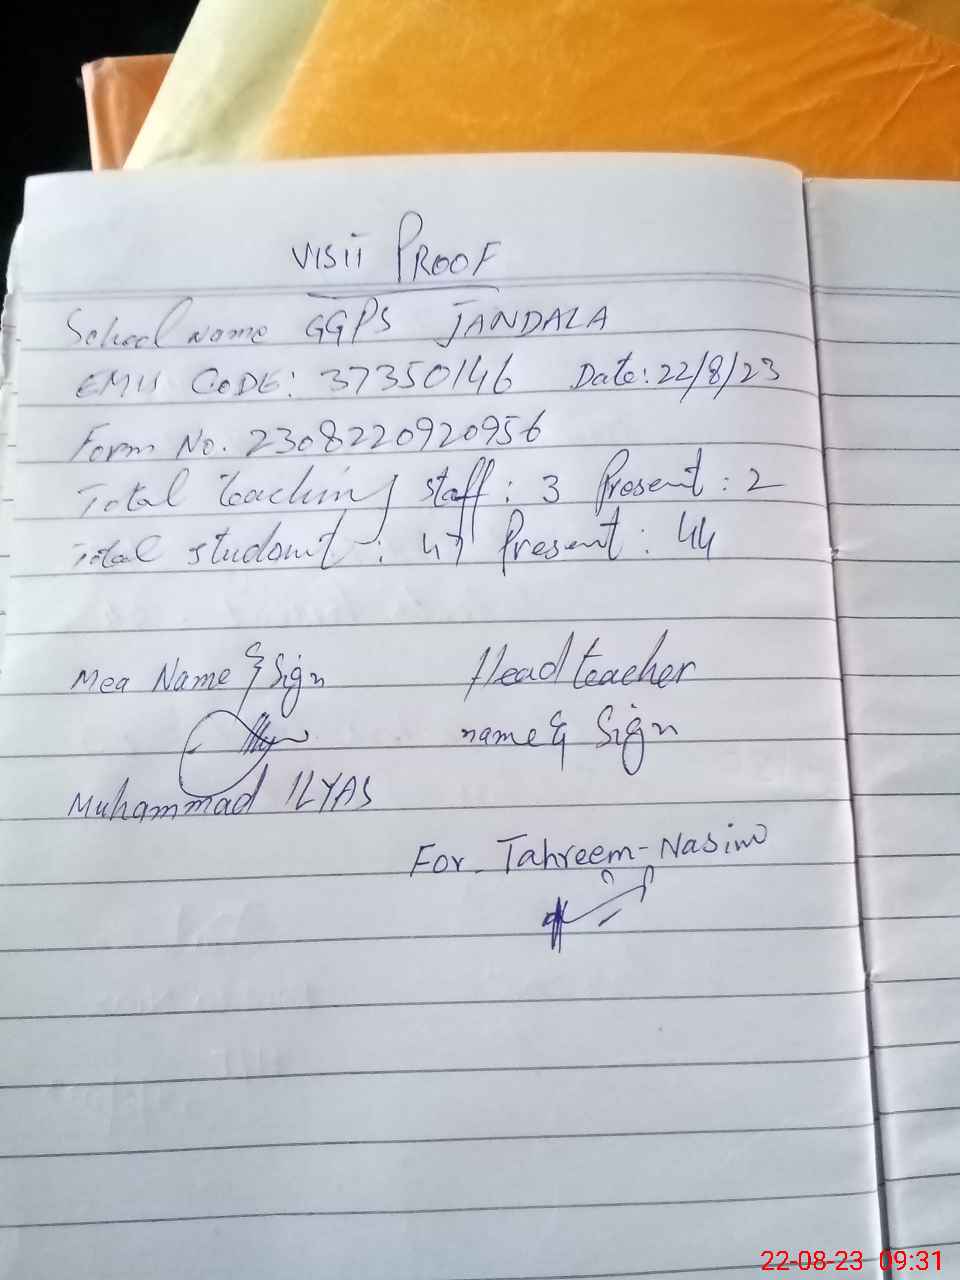 VISIT PROOF
School Name GGPS JANDALA
EMIS CODE: 37350146 Date: 22/8/23
Form No. 2308220920956
Total teaching staff: 3 Present: 2
Total student: 47 Present: 44
Mea Name & Sign Head teacher
name & Sign
Muhammad ILYAS
For-Tahreem-Nasim
22-08-23 09:31